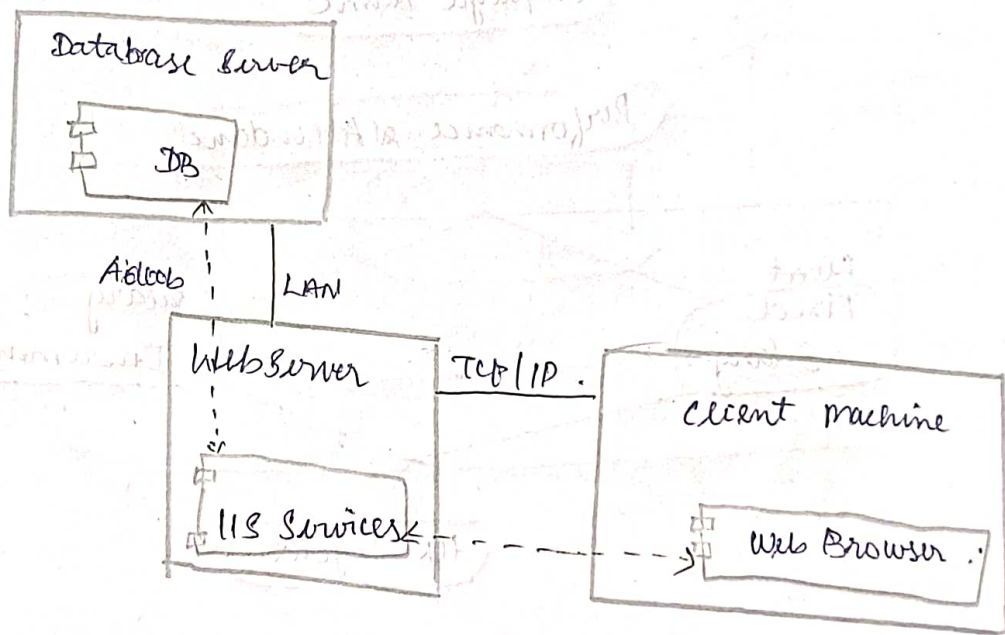 Database Server
DB
LAN
WebServer
TCP/IP.
Client Machine
IIS Services
Web Browser